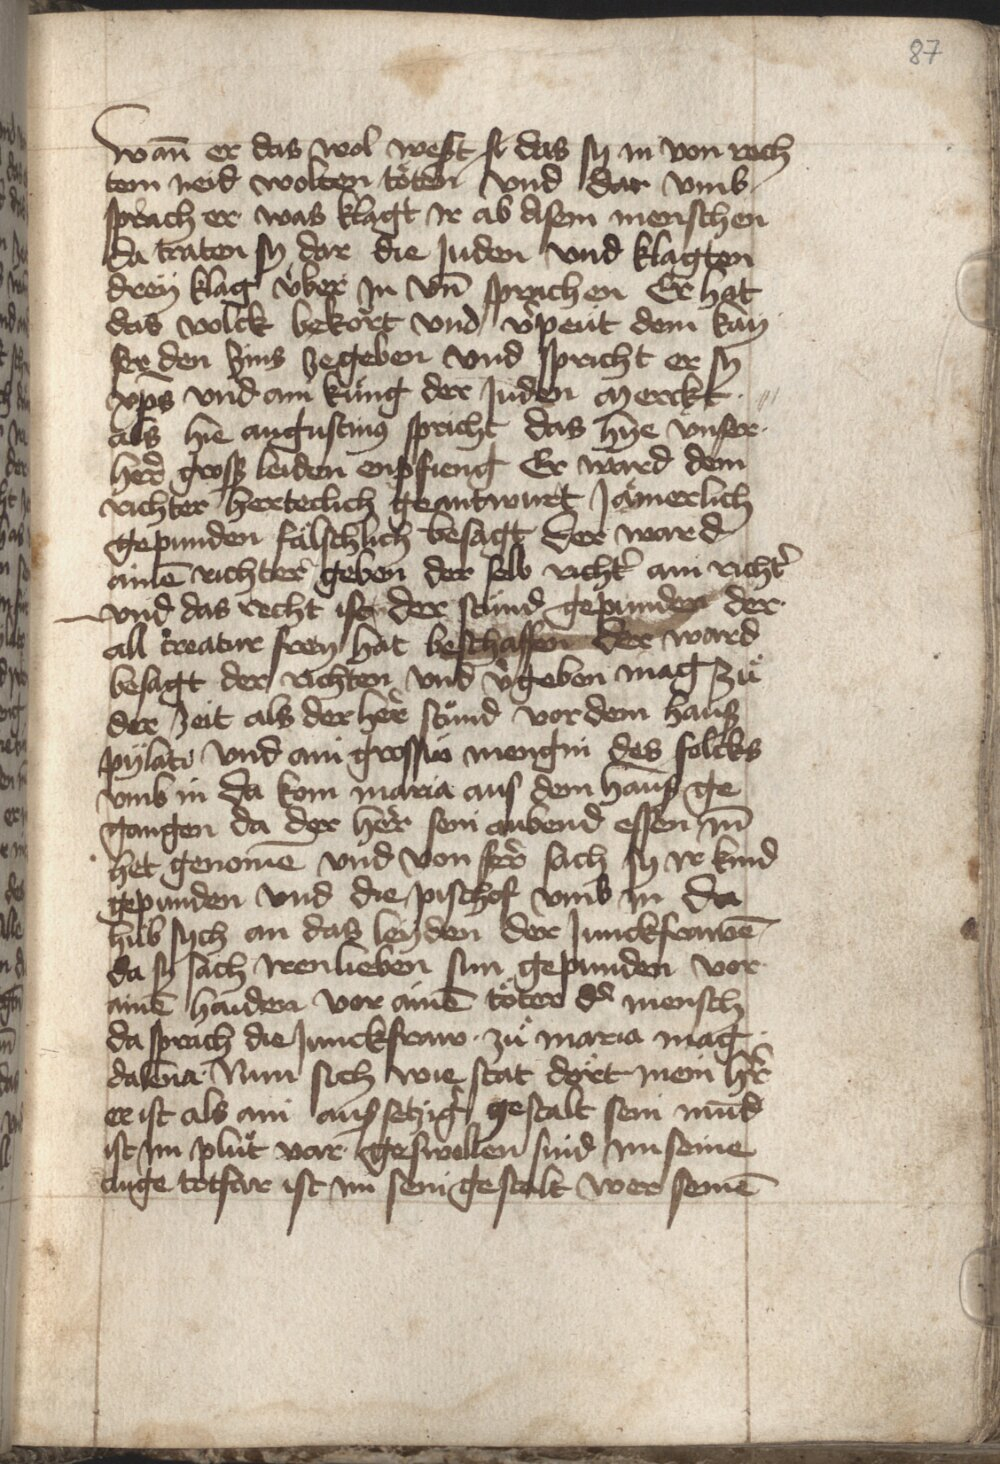 87
wañ er das wol west st das sy in von rech
tem neid wolten töten vnd dar vmb
sprach er was klagt ir ab disem menschen
da traten sy dar die Juden vnd klagten
dreÿ klag vber in vñ sprachen Er hat
das volck bekört vnd v̉peüt dem kaÿ
ser den zins ze geben vnd spricht er sy
xp̄s vnd ain küng der Juden Merckt
als hie augustinus spricht das hye vnser
her̉ gross leiden enpfieng Er ward dem
richter herteclich geantwurt Jämerlich
gepunden fälschlich besagt Der ward
ainē richter geben der selb richt̉ ain richt̉
vnd das recht ist der stund gepunden der
all creatur freÿ hat beschaffen der ward
besagt der richten vnd v̉geben mag Zů
der zeit als der her̉ stůnd vor dem haus
pÿlati vnd ain grossiv mengin des folcks
vmb in da kom maria aus dem haus ge
gangen da der her̉ sein aubend essen in̄
het genomē vnd von fer̉ sach sy ir kind
gepunden vnd die pischof vmb in Da
hůb sych an das leÿden der Junckfrawē
da sy sach iren lieben sun gepunden vor
ainē haiden vor ainē töter d̉ mensch
da sprach die Junckfraw zů maria mag
dalena Nun sich wie stat dört mein h̉r
er ist als ain aussetzig̉ gestalt sein mūd
ist im plůt var geswollen sind im seine
auge totfar ist im sein gestalt wer seinē